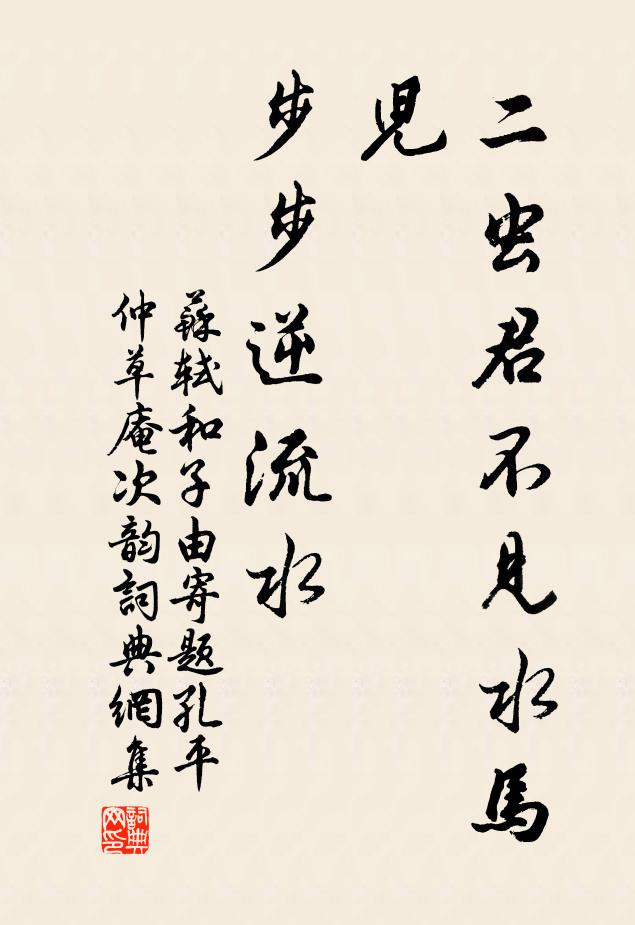 二虫君不見水馬
兒
步步逆流水
蘇軾和子由寄題孔平
仲草庵次韵詞典網集
詞典網印